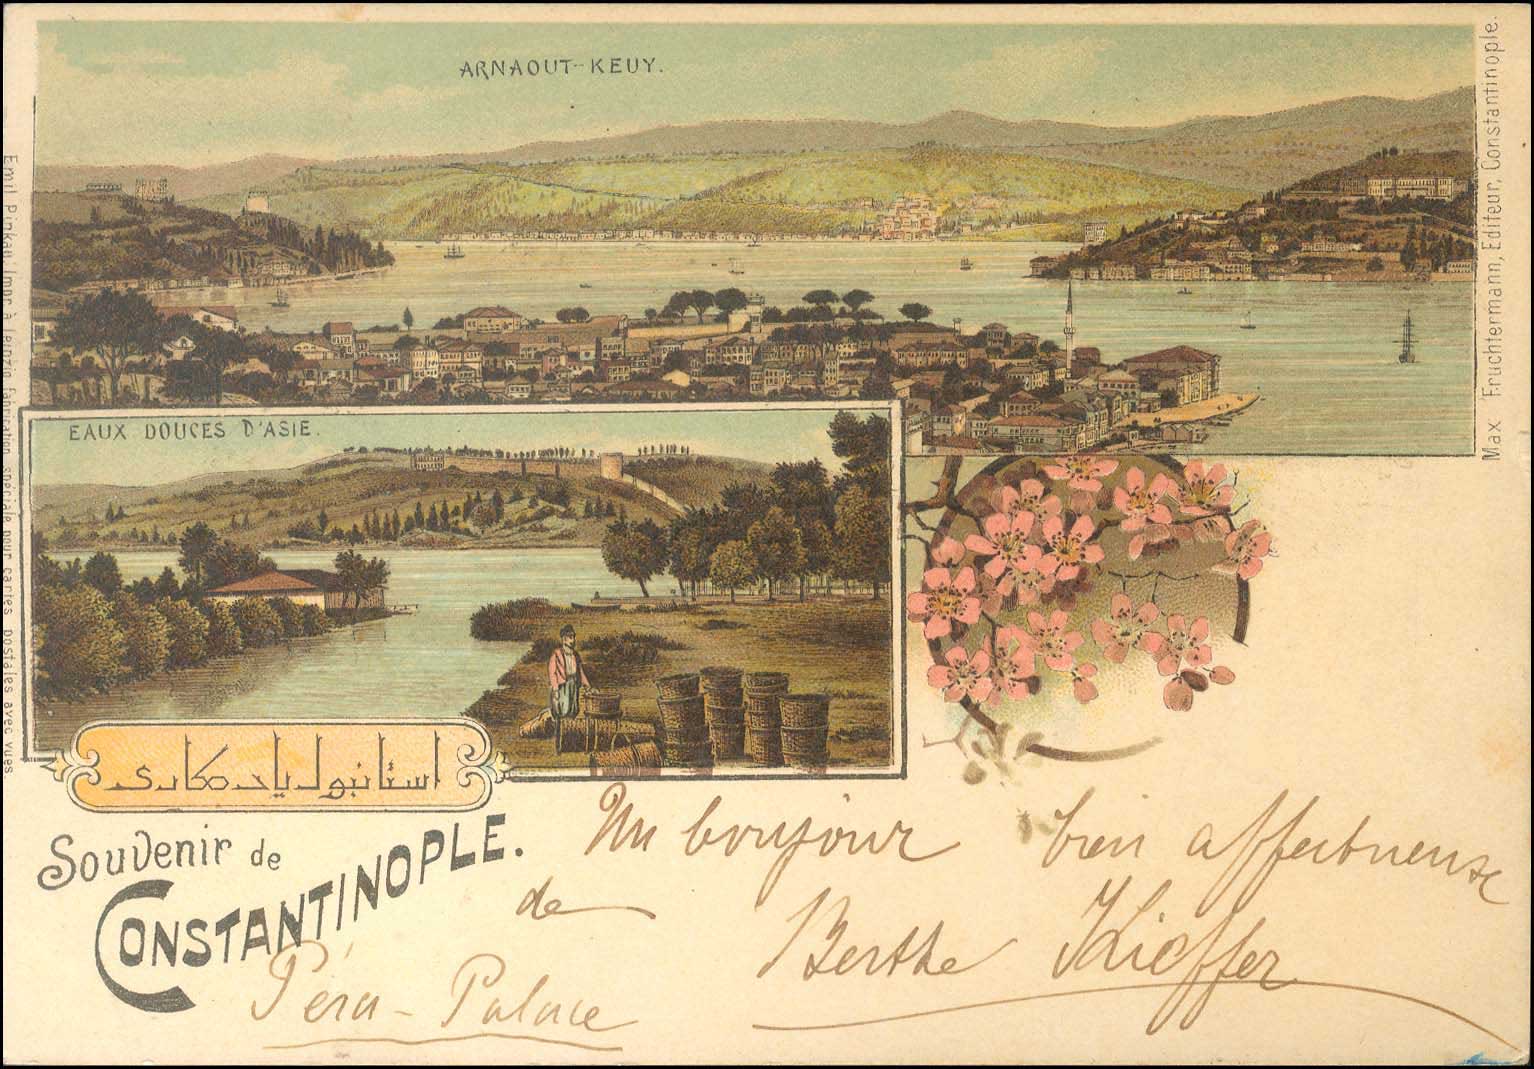 ARNAOUT-KEUY.
Max Fruchtermann, Editeur, Constantinople.
Emil Pinkau Impr. à Leipzig fabrication spéciale pour cartes postales avec vues
EAUX DOUCES D'ASIE.
استانبول یادکاری
Souvenir de
CONSTANTINOPLE.
Un bonjour bien affectueuse
de Berthe Kieffer
Péra-Palace